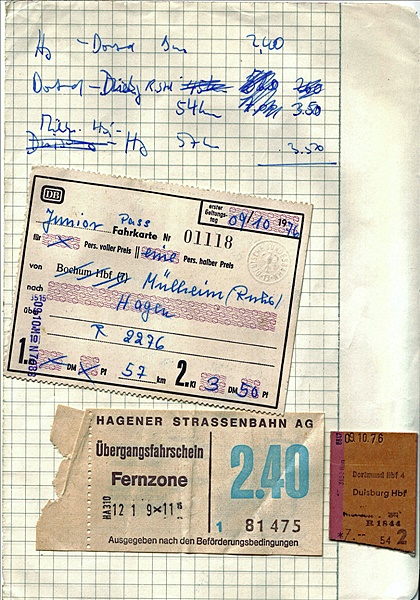 Hg - Dortd Bus 2,40
Dortd - Duisbg R, Std
54km 3.50
Mülh. Hg -
Hg 57km 3.50
DB
erster Geltungstag 09/10 1976
Junior Pass
Fahrkarte Nr 01118
für Pers. voller Preis eine Pers. halber Preis
von Bochum Hbf (7) Mülheim (Ruhr)
nach Hagen
über
R 2276
1. DM Pf 57 km 2. Kl 3 DM 50 Pf
HAGENER STRASSENBAHN AG
Übergangsfahrschein
Fernzone
2.40
HA310 12 1 9 11
1 81475
Ausgegeben nach den Beförderungsbedingungen
09.10.76
Dortmund Hbf 4
Duisburg Hbf
R 1844
*7.-- 54 2